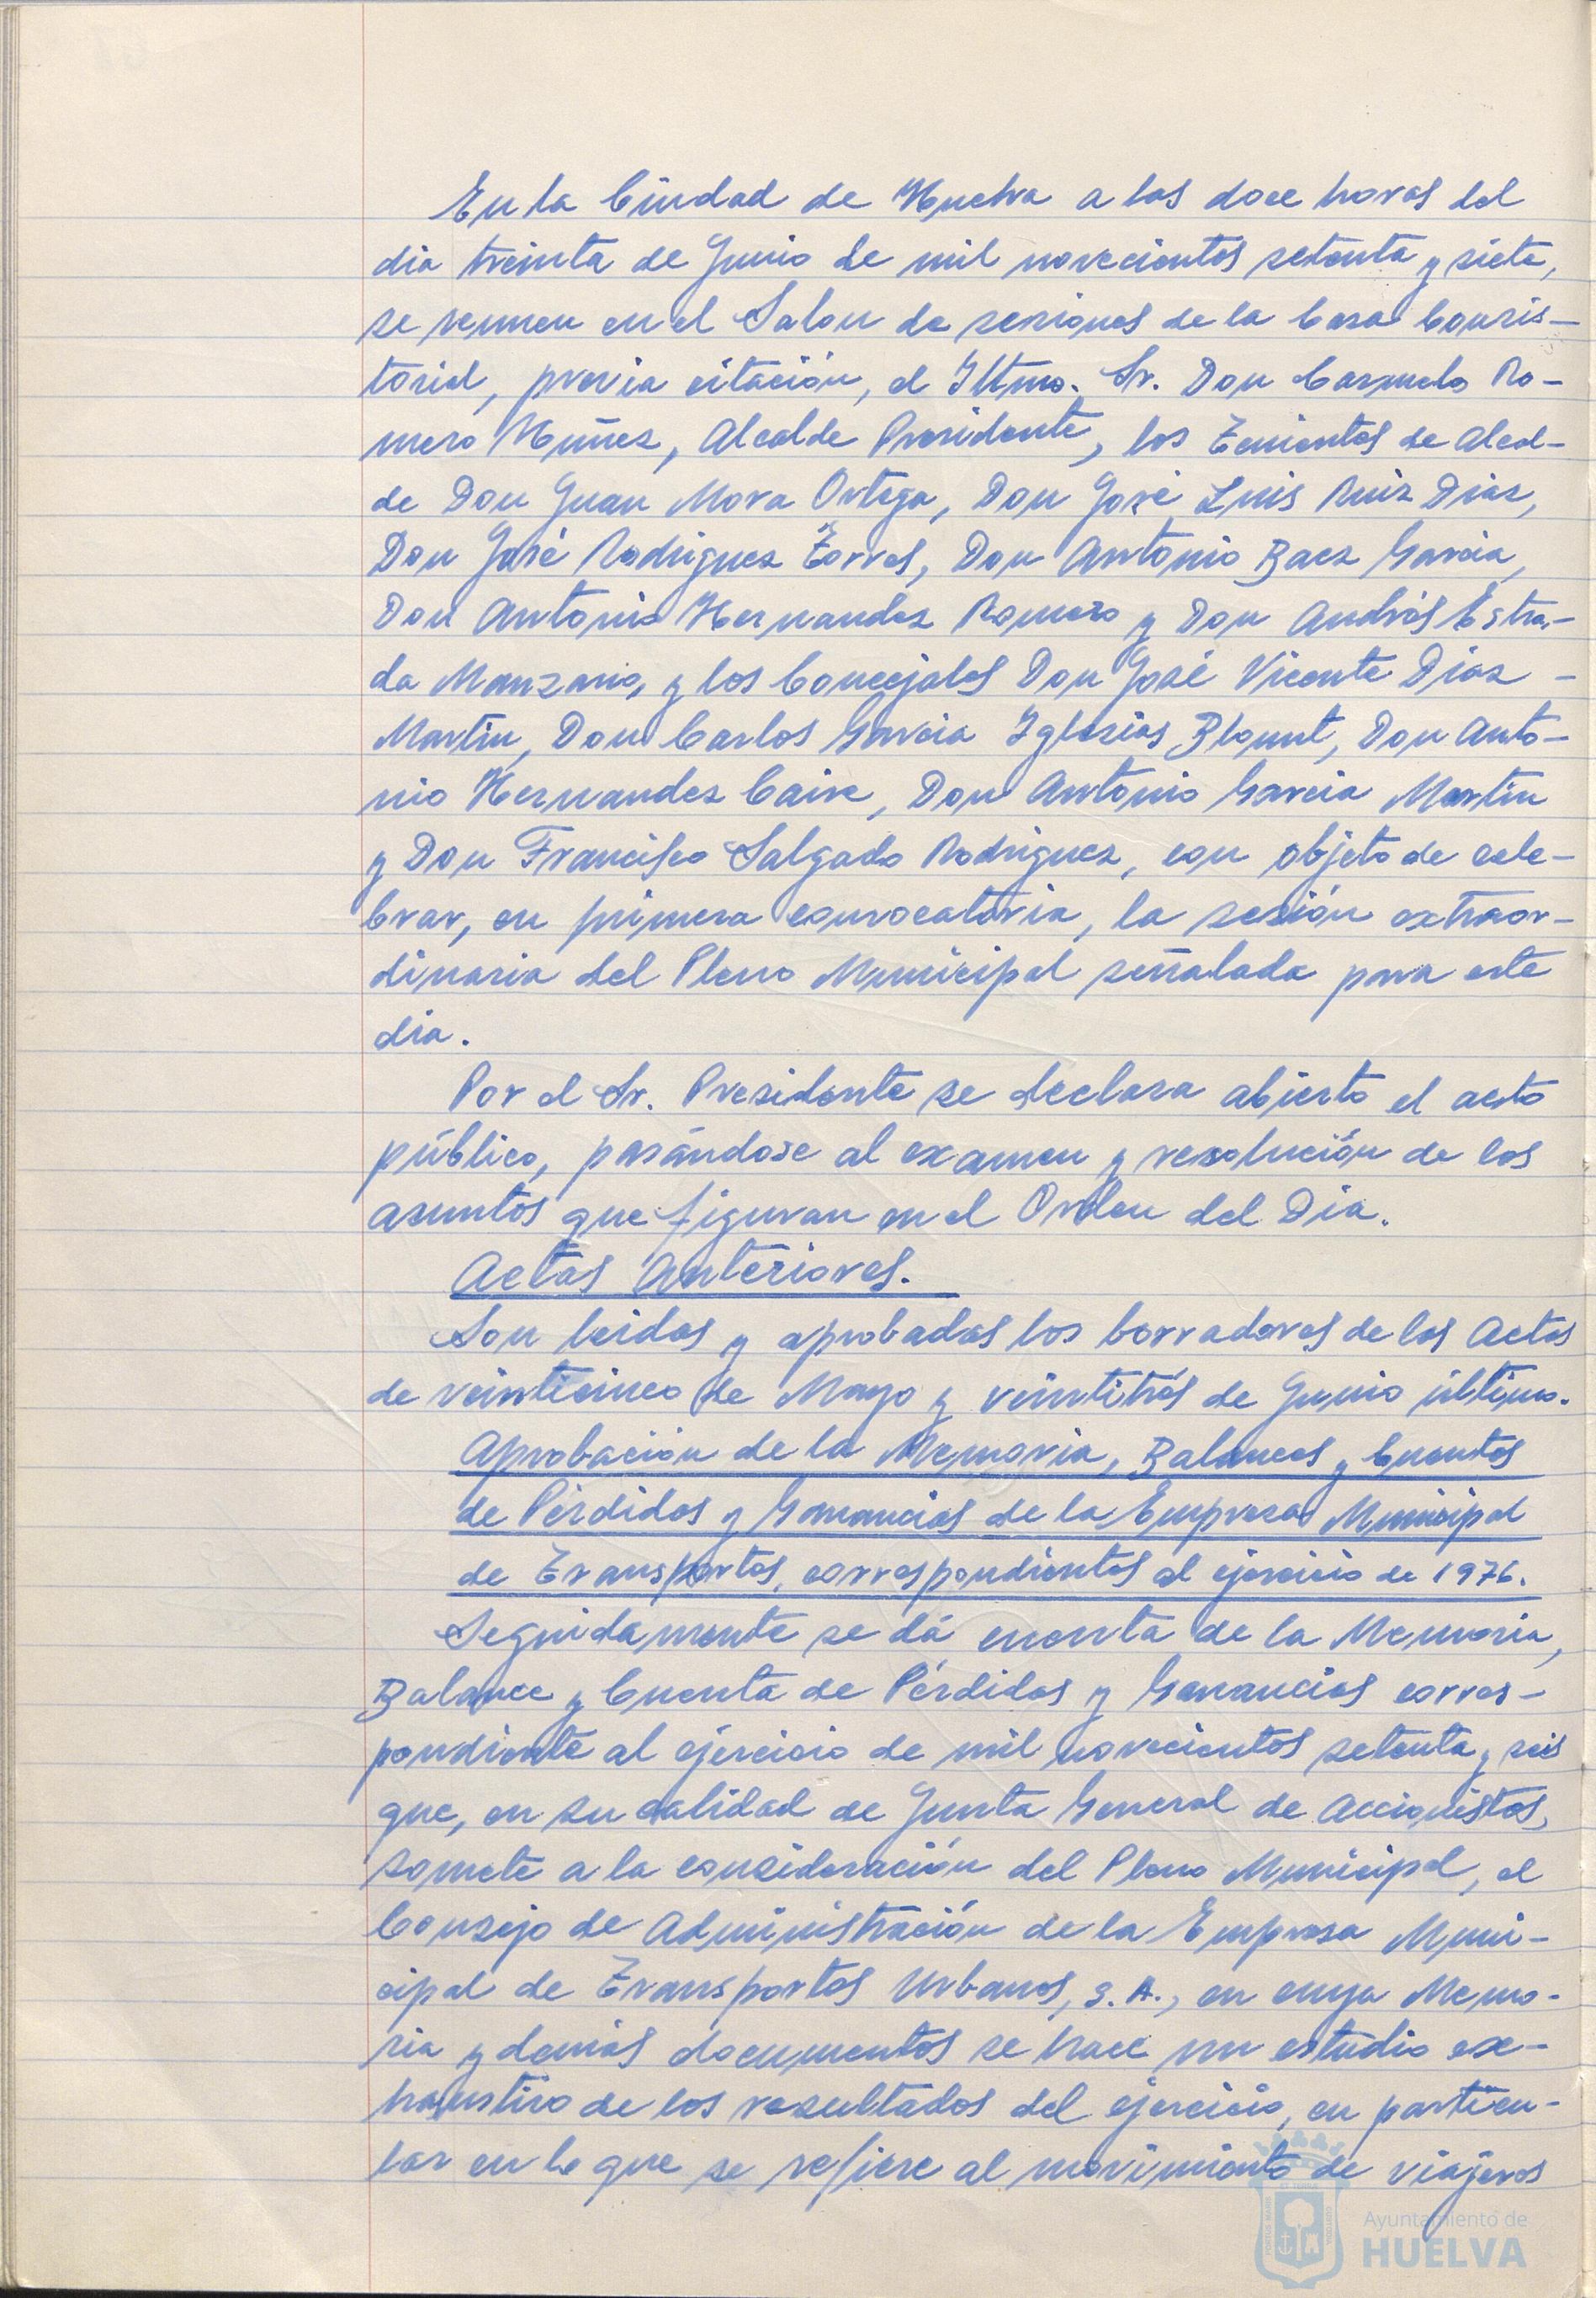 En la Ciudad de Huelva a las doce horas del
dia treinta de Junio de mil novecientos setenta y siete,
se reunen en el Salon de sesiones de la Casa Consis-
torial, previa citación, el Iltmo. Sr. Don Carmelo Ro-
mero Nuñez, Alcalde Presidente, los Tenientes de Alcal-
de Don Juan Mora Ortega, Don José Luis Ruiz Diaz,
Don José Rodriguez Torres, Don Antonio Baez Garcia,
Don Antonio Hernandez Romero y Don Andrés Estra-
da Manzano, y los Concejales Don José Vicente Diaz -
Martin, Don Carlos Garcia Iglesias Blount, Don Anto-
nio Hernandez Caire, Don Antonio Garcia Martin
y Don Francisco Salgado Rodriguez, con objeto de cele-
brar, en primera convocatoria, la sesión extraor-
dinaria del Pleno Municipal señalada para este
dia.
Por el Sr. Presidente se declara abierto el acto
público, pasándose al examen y resolución de los
asuntos que figuran en el Orden del Dia.
Actas Anteriores.
Son leidos y aprobados los borradores de las Actas
de veinticinco de Mayo y veintitrés de Junio último.
Aprobación de la Memoria, Balances y Cuentas
de Pérdidas y Ganancias de la Empresa Municipal
de Transportes, correspondientes al ejercicio de 1976.
Seguidamente se dá cuenta de la Memoria,
Balance y Cuenta de Pérdidas y Ganancias corres-
pondiente al ejercicio de mil novecientos setenta y seis
que, en su calidad de Junta General de Accionistas,
somete a la consideración del Pleno Municipal, el
Consejo de Administración de la Empresa Muni-
cipal de Transportes Urbanos, S.A., en cuya Memo-
ria y demás documentos se hace un estudio ex-
haustivo de los resultados del ejercicio, en particu-
lar en lo que se refiere al movimiento de viajeros
Ayuntamiento de
HUELVA